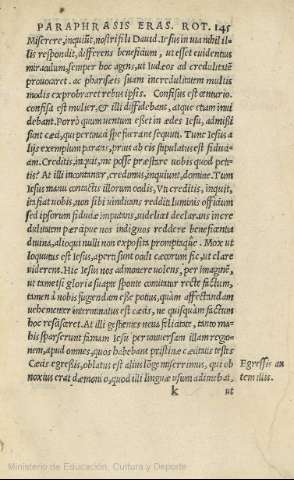 PARAPHRASIS ERAS. ROT. 145
Miserere, inquiũt, nostri fili Dauid. Iesus in via nihil il-
lis respondit, differens beneficium, ut esset euidentius
miraculum, semper hoc agens, ut Iudæos ad credulitatẽ
prouocaret. ac pharisæis suam incredulitatem multis
modis exprobraret rebus ipsis. Confisus est centurio.
confisa est mulier, & illi diffidebant, atque etiam inui
debant. Porrò quum uentum esset in ædes Iesu, admissi
sunt cæci, qui pertinaci spe fuerant sequuti. Tunc Iesus a
lijs exemplum parans, prius ab ijs stipulatus est fiduci-
am. Creditis, inquit, me posse præstare uobis quod pe-
titis? At illi incontanter, credimus, inquiunt, domine. Tum
Iesus manu contactis illorum oculis, Vt creditis, inquit,
ita fiat uobis, non sibi uindicans redditi luminis officium
sed ipsorum fiduciæ imputans, nobis declarans incre
dulitatem per quæ nos indignos reddere beneficentia
diuina, alioqui nulli non exposita promptaque. Mox ut
loquutus est Iesus, aperti sunt oculi cæcorum sic, ut clare
uiderent. Hic Iesus nos admonere uolens, per imaginẽ,
ut tametsi gloria suapte sponte comitatur recte factum,
tamen à nobis fugiendam esse potius, quàm affectandam
uehementer interminatus est cæcis, ne cuiquam factum
hoc resciscret. At illi gestientes noua felicitate, tanto ma-
bis sparserunt famam Iesu per uniuersam illam regio-
nem, apud omnes, quos habebant pristinæ cæcitatis testes
Cæcis egressis, oblatus est alius lõge miserrimus, qui ob
noxius erat dæmonio, quod illi linguæ usum adimebat,
k ut
Egressis au
tem illis.
Ministerio de Educación, Cultura y Deporte